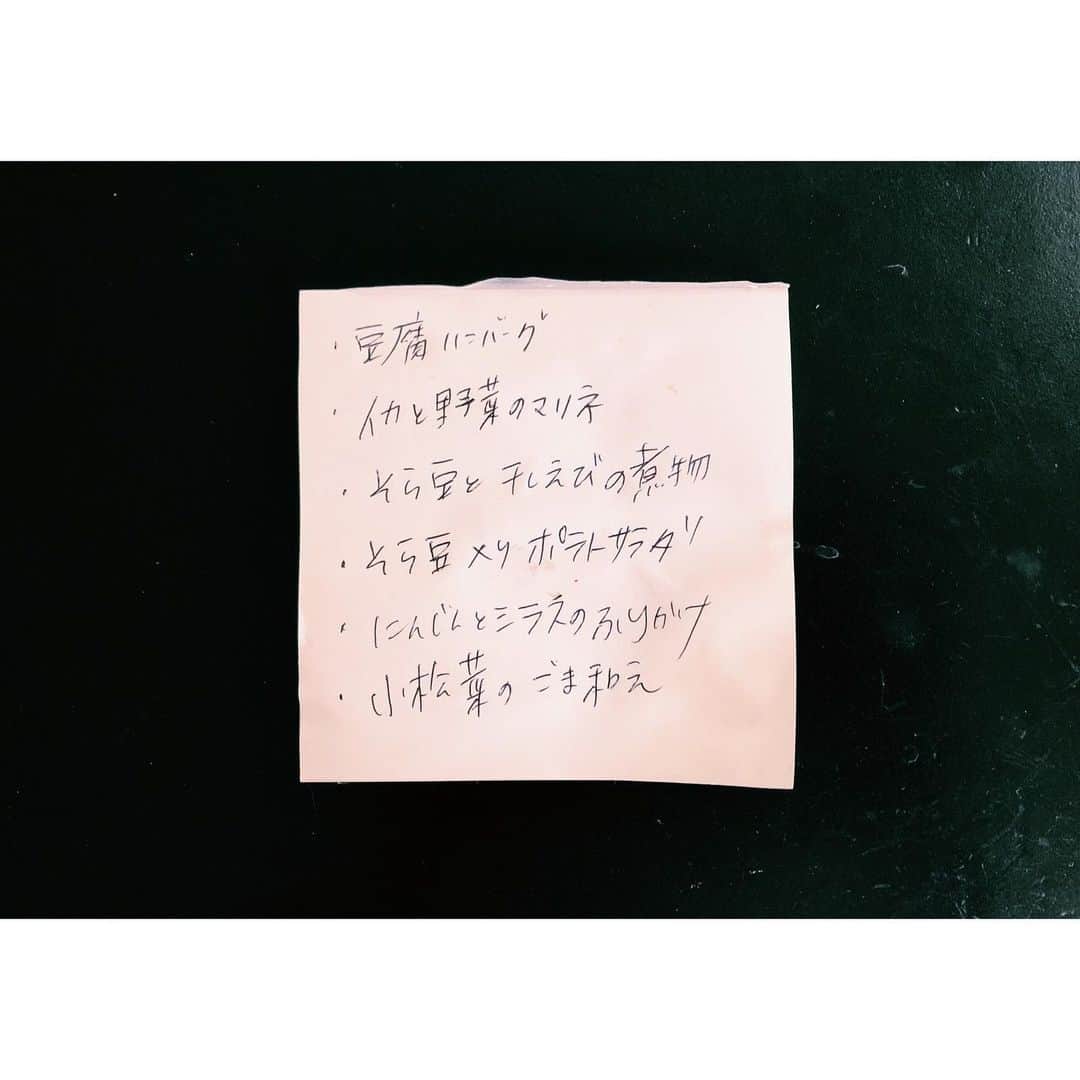 ・豆腐ハンバーグ
・イカと野菜のマリネ
・そら豆と干しえびの煮物
・そら豆入りポテトサラダ
・にんじんとシラスのふりかけ
・小松菜のごま和え